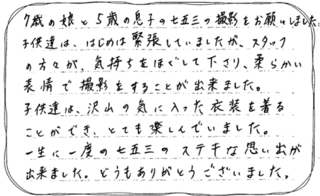 7歳の娘と5歳の息子の七五三の撮影をお願いしました。
子供達は、はじめは緊張していましたが、スタッフ
の方々が、気持ちをほぐして下さり、柔らかい
表情で撮影をすることが出来ました。
子供達は、沢山の気に入った衣装を着る
ことができ、とても楽しんでいました。
一生に一度の七五三のステキな思い出が
出来ました。どうもありがとうございました。